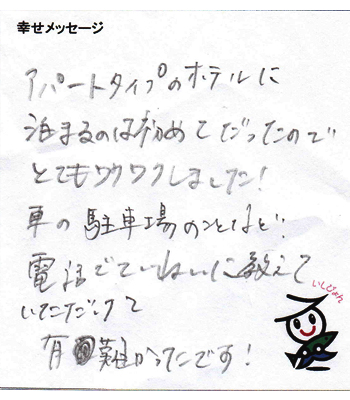 幸せメッセージ
アパートタイプのホテルに
泊まるのは初めてだったので
とてもワクワクしました!
車の駐車場のことなど、
電話でていねいに教えて
いただけて
いしぴょん
有難かったです!